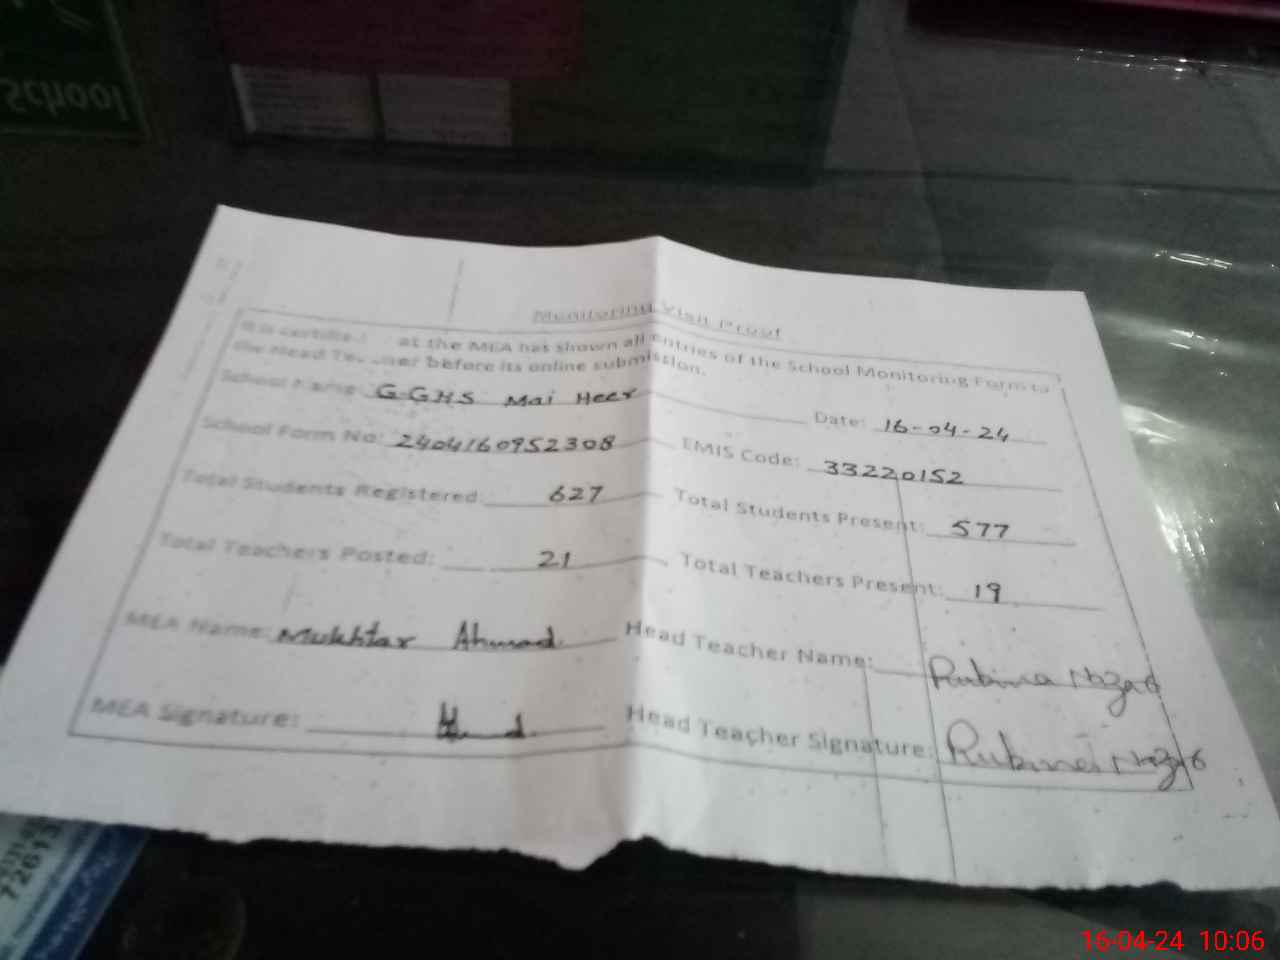 School
Monitoring Visit Proof
It is certified at the MEA has shown all entries of the School Monitoring Form to
the Head Teacher before its online submission.
School Name: GGHS Mai Heer Date: 16-04-24
School Form No: 2404160952308 EMIS Code: 33220152
Total Students Registered: 627 Total Students Present: 577
Total Teachers Posted: 21 Total Teachers Present: 19
MEA Name: Mukhtar Ahmad. Head Teacher Name: Rubina
MEA Signature: Head Teacher Signature: Rubina
16-04-24 10:06